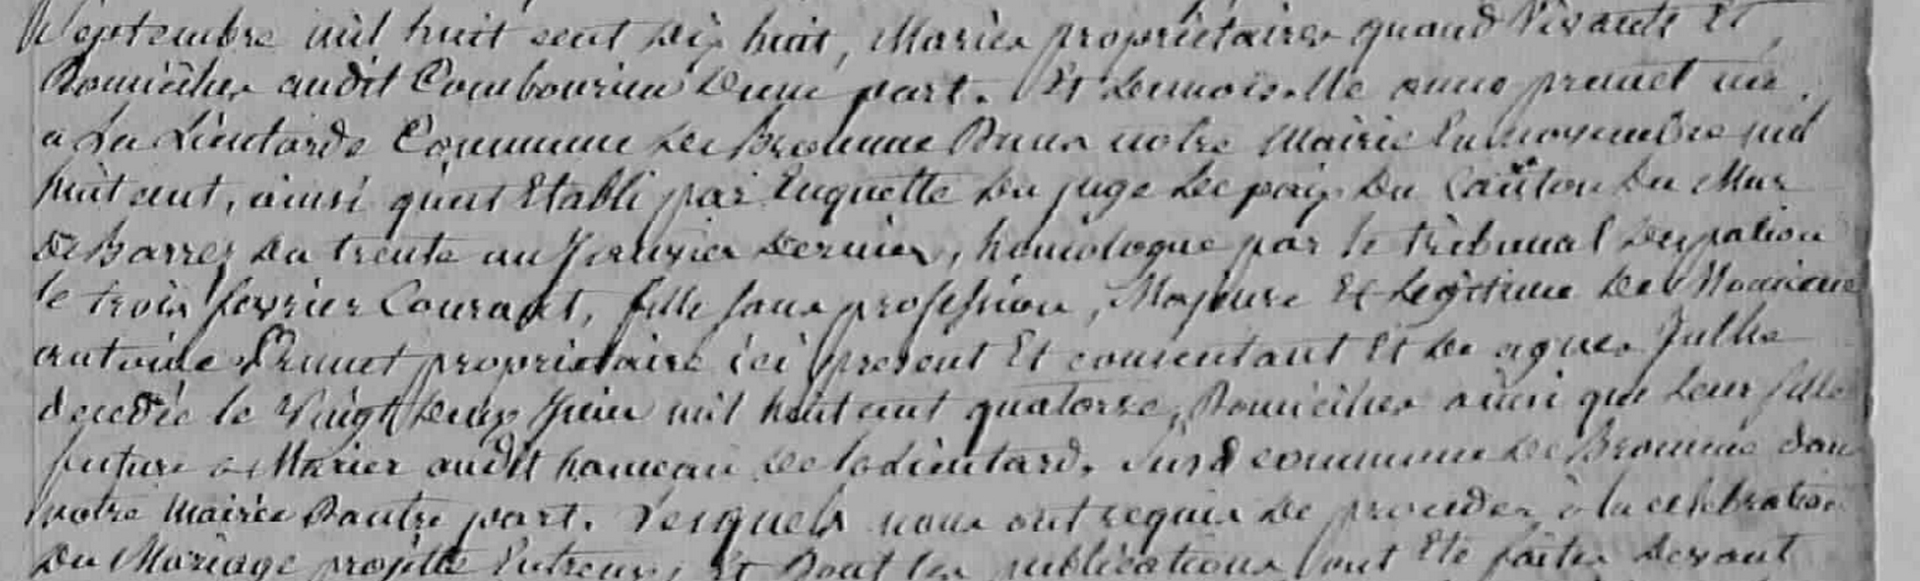 Septembre mil huit cent dix huit, Mariés propriétaires quand vivants Et
Domiciliés audit Combourieu d'une part. Et demoiselle anne prunet née
a La Lieutarde Commune de Bromme Dans notre Mairie En novembre mil
huit cent, ainsi quest Etabli par Enquette du juge de paix du Canton du Mur
de Barrez du trente un Janvier dernier, homologué par le tribunal despalion
le trois fevrier Courant, fille sans profession, Majeure Et Legitime de
antoine Prunet propriétaire ici present Et consentant Et de agnes Julhe
décédée le vingt deux Juin mil huit cent quatorze, Domiciliés ainsi que leur fille
future a Marier audit hameau de la Lieutard. Susd commune de Bromme dans
notre Mairie Dautre part. Lesquels nous ont requis de proceder à la celebration
Du Mariage projetté Entreux, Et Dont les publications ont Eté faites devant